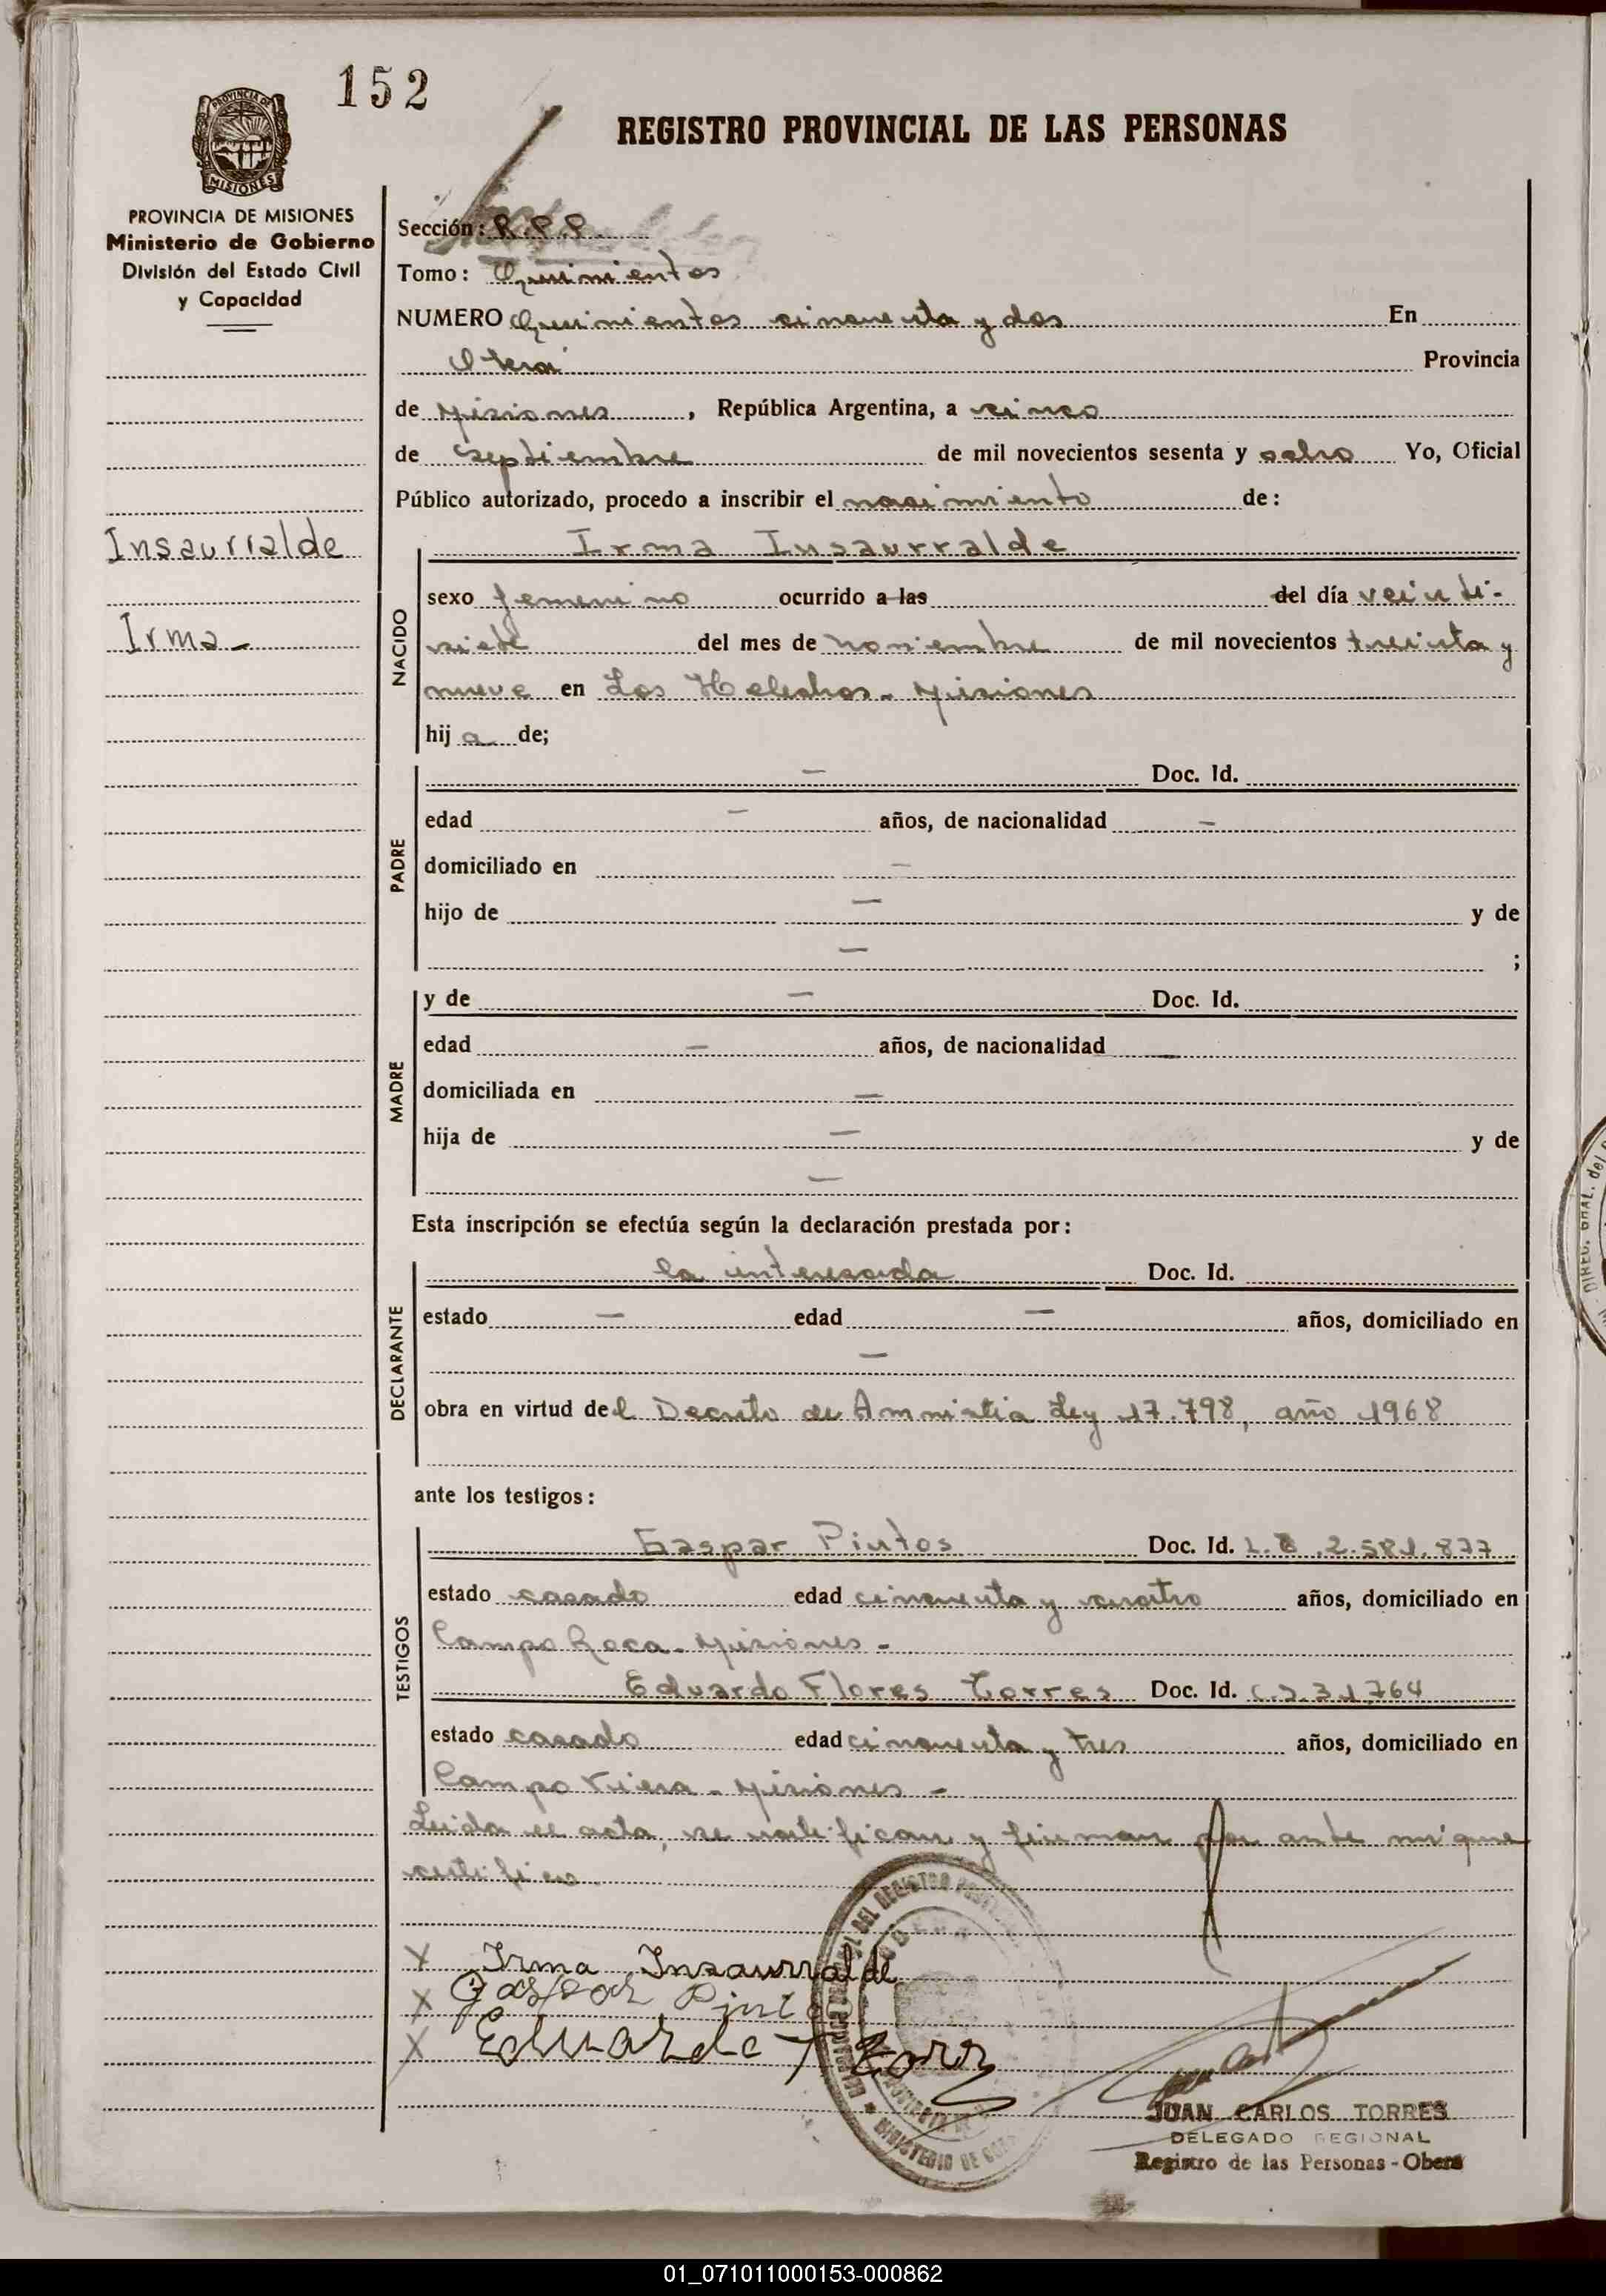 152
REGISTRO PROVINCIAL DE LAS PERSONAS
PROVINCIA DE MISIONES
Ministerio de Gobierno
División del Estado Civil
y Capacidad
Sección: R.P.P.
Tomo: Quinientos
NUMERO Quinientos cincuenta y dos En
Oberá Provincia
de Misiones, República Argentina, a cinco
de septiembre de mil novecientos sesenta y ocho Yo, Oficial
Público autorizado, procedo a inscribir el nacimiento de:
Insaurralde
Irma Insaurralde
NACIDO
sexo femenino ocurrido a las del día veinti-
Irma -
siete del mes de noviembre de mil novecientos treinta y
nueve en Los Helechos - Misiones
hija de;
PADRE
— Doc. Id.
edad — años, de nacionalidad —
domiciliado en —
hijo de — y de
— ;
MADRE
y de — Doc. Id.
edad — años, de nacionalidad —
domiciliada en —
hija de — y de
—
Esta inscripción se efectúa según la declaración prestada por:
DECLARANTE
la interesada Doc. Id.
estado — edad — años, domiciliado en
—
obra en virtud del Decreto de Amnistia Ley 17.798, año 1968
ante los testigos:
TESTIGOS
Gaspar Pintos Doc. Id. L.E. 2.581.877
estado casado edad cincuenta y cuatro años, domiciliado en
Campo Roca - Misiones -
Eduardo Flores Torres Doc. Id. C.I. 31.764
estado casado edad cincuenta y tres años, domiciliado en
Campo Viera - Misiones -
Leida el acta, se ratifican y firman por ante mi que
certifico.
X Irma Insaurralde
X Gaspar Pinto
X Eduardo F Torr
JUAN CARLOS TORRES
DELEGADO REGIONAL
Registro de las Personas - Obera
01_071011000153-000862